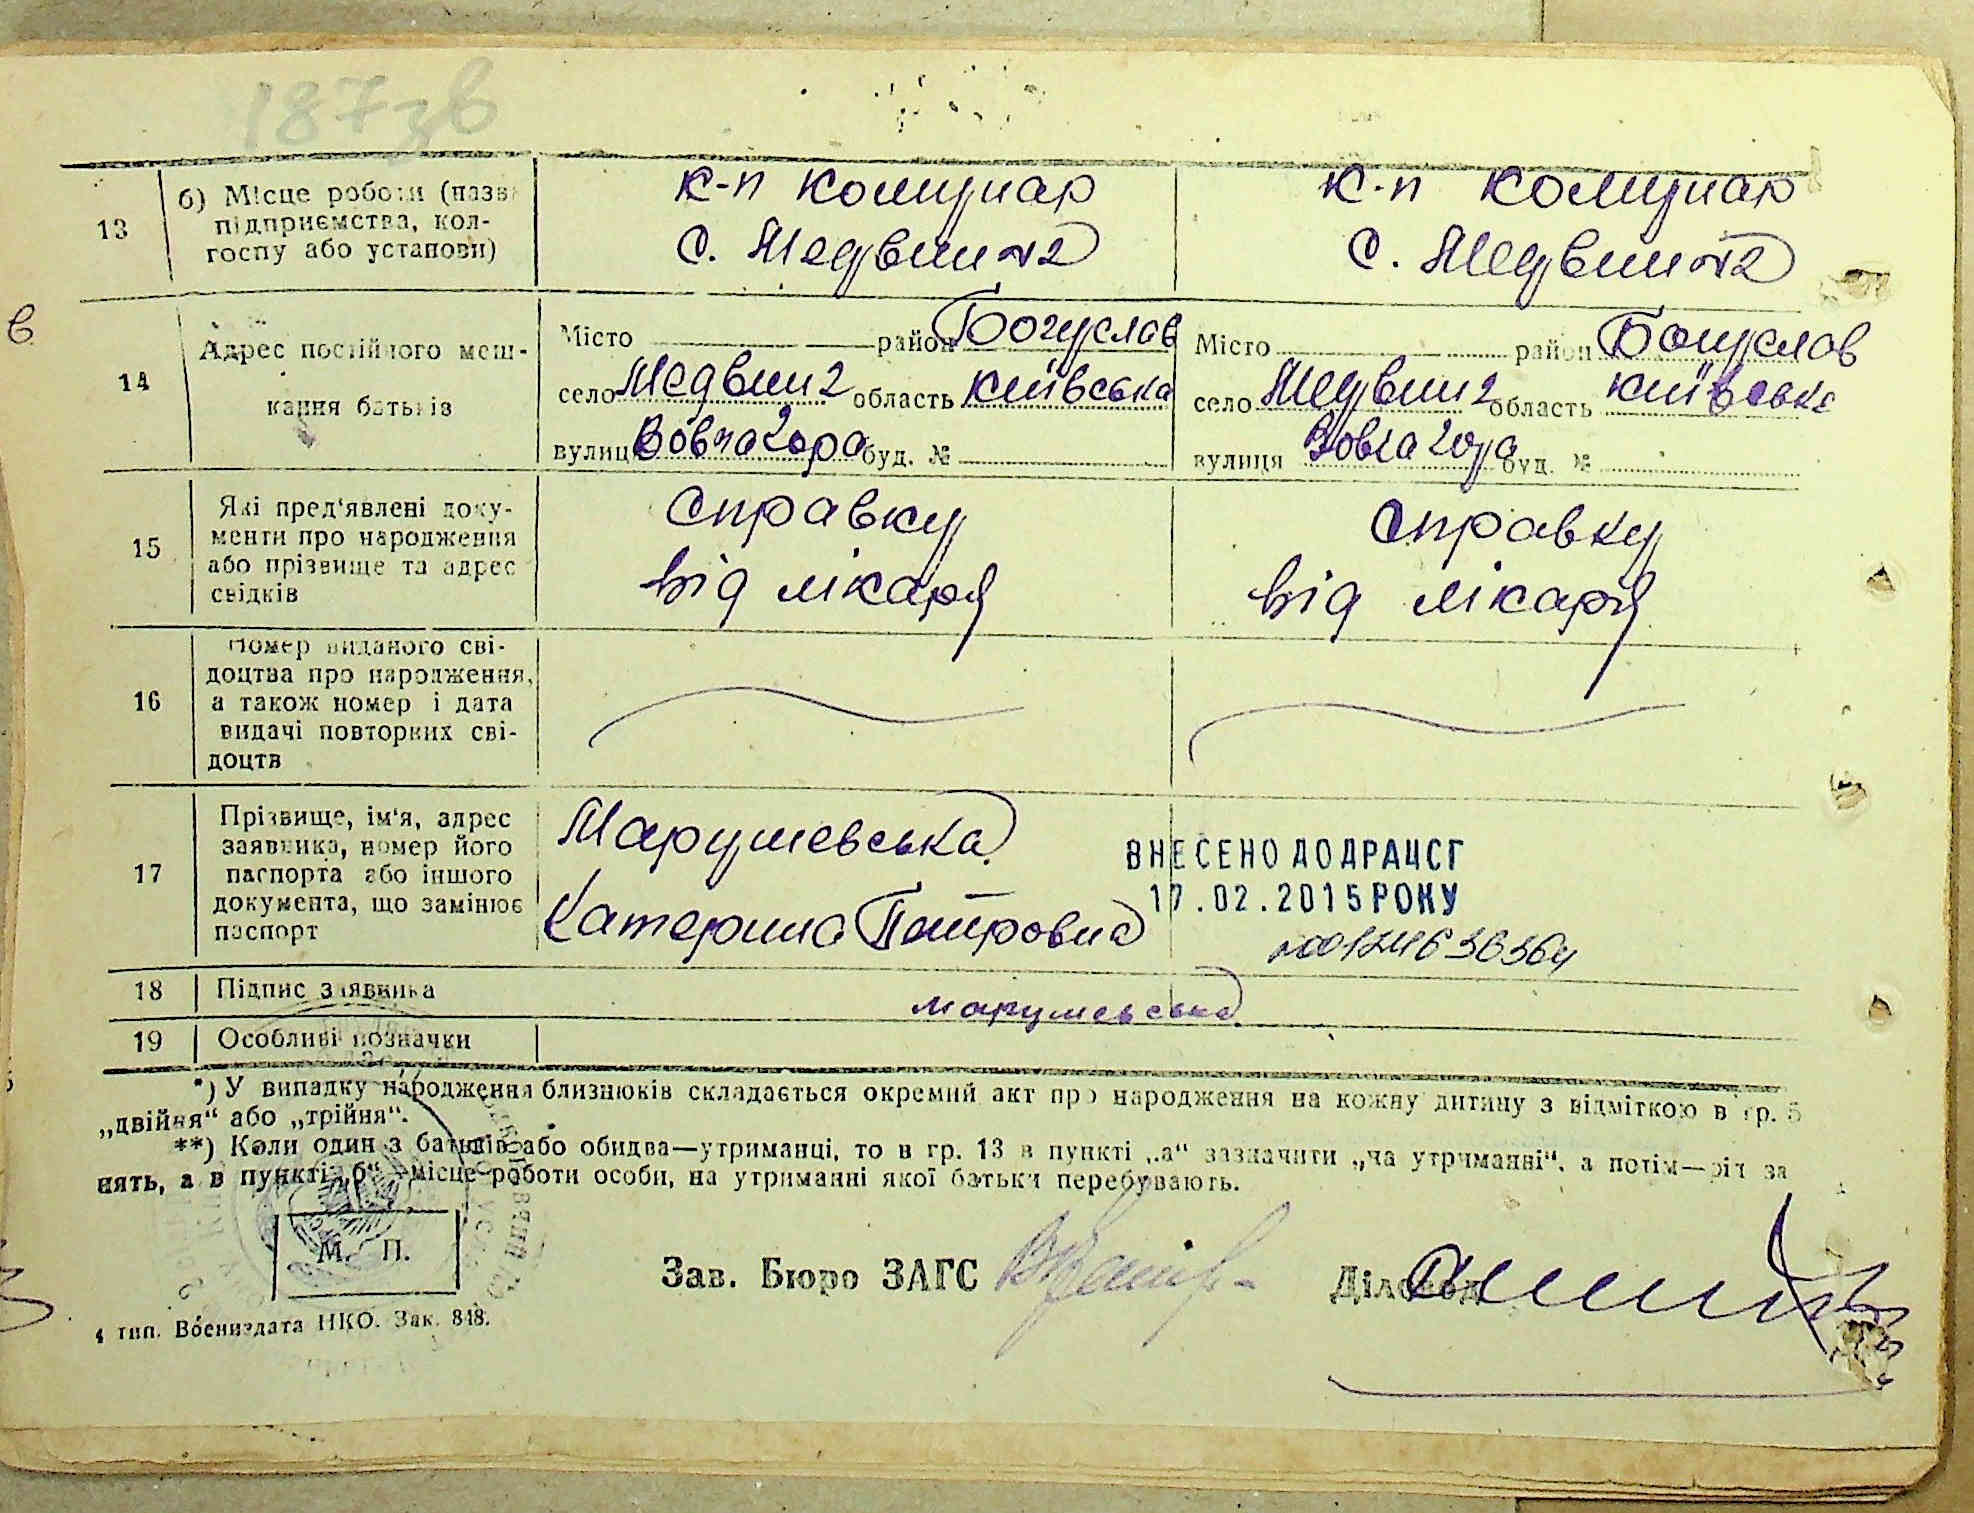 187зв
13
б) Місце роботи (назва
підприємства, кол-
госпу або установи)
к-п комунар
с. Медвин
к-п комунар
с. Медвин
в
14
Адрес постійного меш-
кання батьків
Місто район Богуслав
село Медвин область Київська
вулиця Вовча гора буд. №
Місто район Богуслав
село Медвин область Київська
вулиця Вовча гора буд. №
15
Які пред'явлені доку-
менти про народження
або прізвище та адрес
свідків
Справку
від лікаря
Справку
від лікаря
16
Номер виданого сві-
доцтва про народження,
а також номер і дата
видачі повторних сві-
доцтв
17
Прізвище, ім'я, адрес
заявника, номер його
паспорта або іншого
документа, що замінює
паспорт
Марушевська
Катерина Петровна
ВНЕСЕНО ДО ДРАЦСГ
17.02.2015 РОКУ
18
Підпис заявника
Марушевська
19
Особливі позначки
*) У випадку народження близнюків складається окремий акт про народження на кожну дитину з відміткою в гр. 5
„двійня“ або „трійня“.
**) Коли один з батьків або обидва—утриманці, то в гр. 13 в пункті „а“ зазначити „на утриманні“, а потім—рід за
нять, а в пункті „б“—місце роботи особи, на утриманні якої батьки перебувають.
М. П.
Зав. Бюро ЗАГС
Діловод
4 тип. Воениздата НКО. Зак. 848.